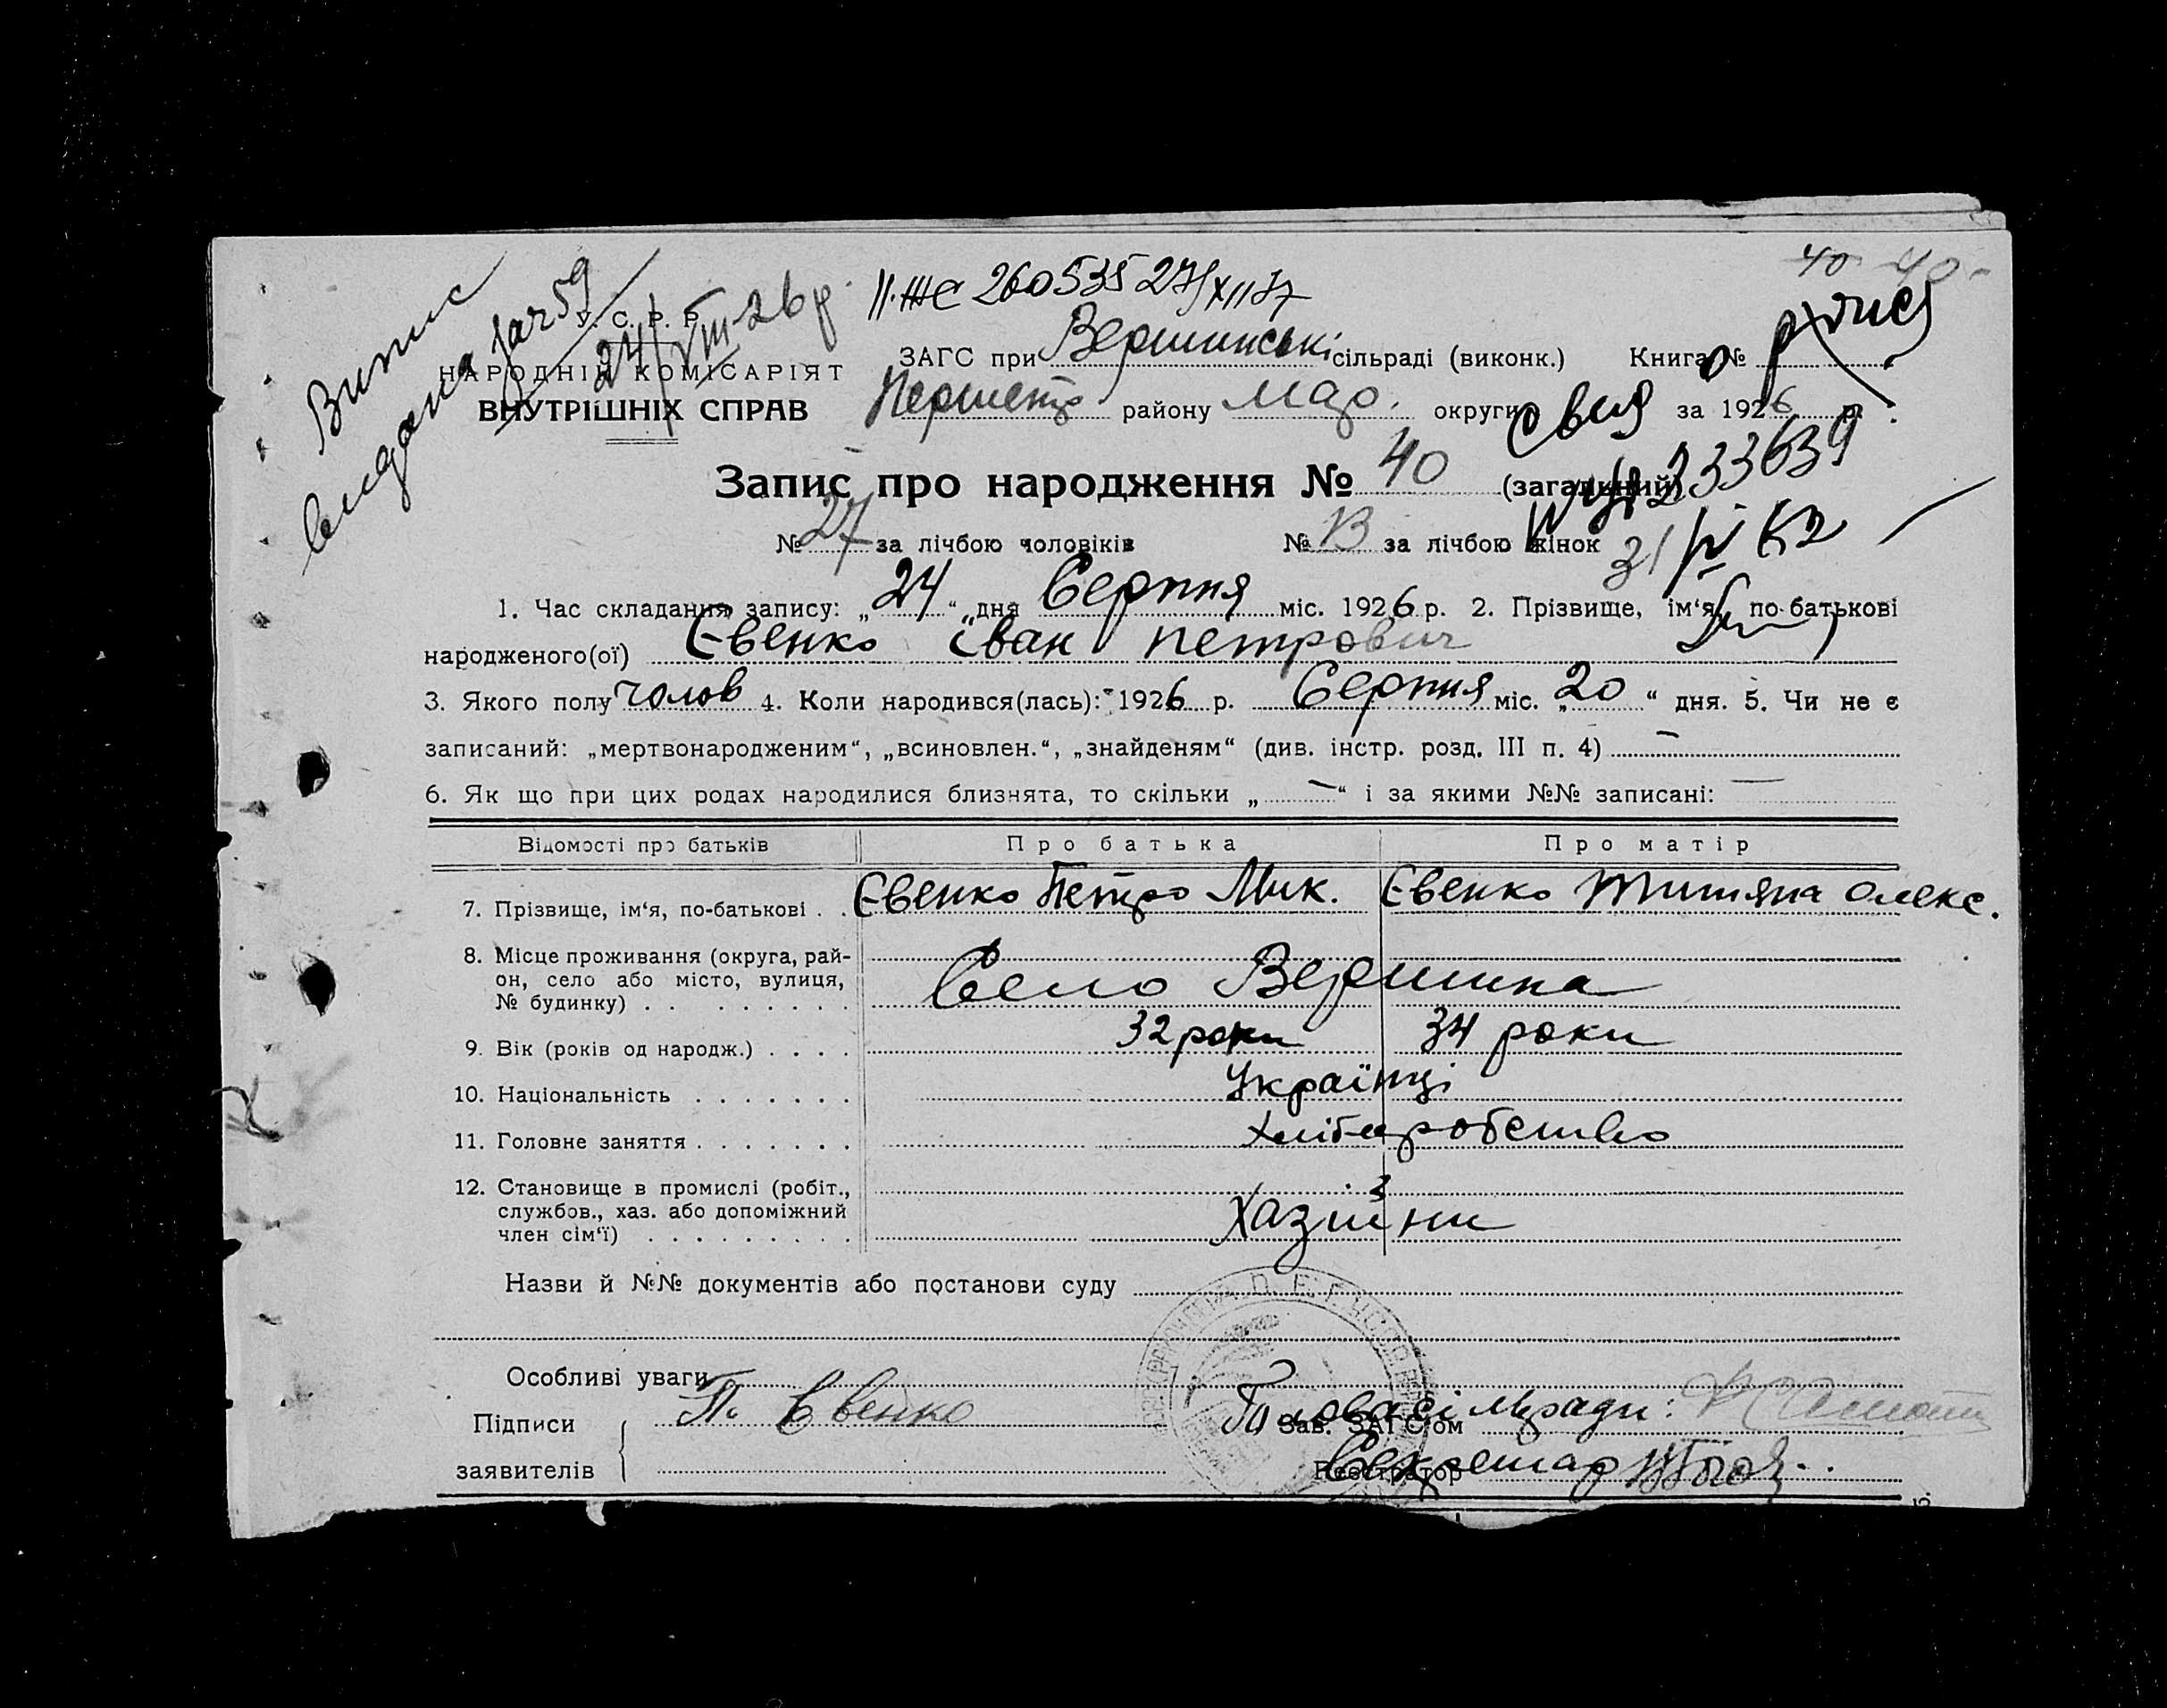 40 40
Випис
видана за № 59
24/VIII-26 р.
ІІ-ЖС 260535 27/XII 87
У. С. Р. Р.
НАРОДНІЙ КОМІСАРІЯТ
ВНУТРІШНІХ СПРАВ
ЗАГС при Вершинські сільраді (виконк.) Книга №
району Мар. округи за 1926 р.
Запис про народження № 40 (загальний)
233639
№ 27 за лічбою чоловіків № 13 за лічбою жінок
31/IV 62
1. Час складання запису: „24“ дня Серпня міс. 1926 р. 2. Прізвище, ім‘я, по-батькові
народженого(ої) Євенко Іван Петрович
3. Якого полу чолов 4. Коли народився(лась): 1926 р. Серпня міс. „20“ дня. 5. Чи не є
записаний: „мертвонародженим“, „всиновлен.“, „знайденям“ (див. інстр. розд. III п. 4) –
6. Як що при цих родах народилися близнята, то скільки „–“ і за якими №№ записані: –
Відомості про батьків Про батька Про матір
7. Прізвище, ім‘я, по-батькові . . Євенко Петро Мик. Євенко Титяна Олекс.
8. Місце проживання (округа, рай-
он, село або місто, вулиця,
№ будинку) . . . . . . . . Село Вершина
9. Вік (років од народж.) . . . . 32 роки 34 роки
10. Національність . . . . . . . Українці
11. Головне заняття . . . . . . . Хліборобство
12. Становище в промислі (робіт.,
службов., хаз. або допоміжний
член сім‘ї) . . . . . . . . . Хазяїни
Назви й №№ документів або постанови суду
Особливі уваги
Підписи П. Євенко Голова сільради:
Зав. ЗАГС‘ом
заявителів Секретар
Реєстратор